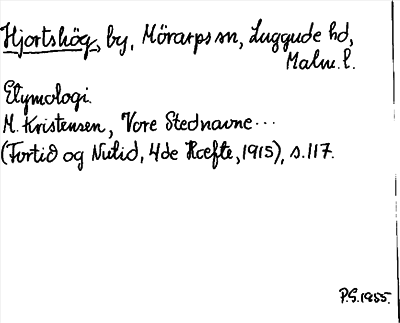 Hjortshög, by, Mörarps sn, Luggude hd,
Malm. l.
Etymologi.
M. Kristensen, Vore Stednavne...
(Fortid og Nutid, 4de Hæfte, 1915), s. 117.
P.G. 1955.